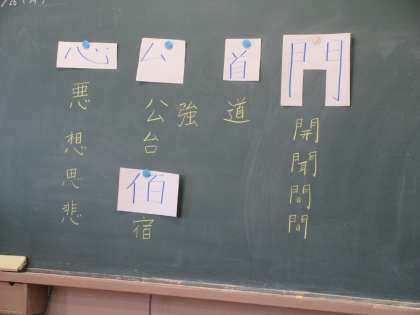 心
悪
想
思
悲
公
公 強
台
伯
宿
首
道
門
開
聞
問
間